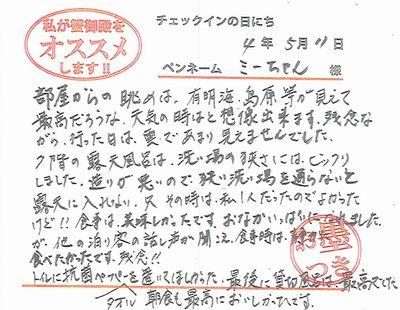 私が蟹御殿を
オススメ
します!!
チェックインの日にち
4年 5月 11日
ペンネーム ミーちゃん 様
部屋からの眺めは、有明海、島原等が見えて
最高だろうな、天気の時はと想像出来ます。残念な
がら、行った日は、雲であまり見えませんでした。
7階の露天風呂は、洗い場の狭さには、ビックリ
しました。造りが悪いので狭い洗い場を通らないと
露天に入れない。又その時は、私1人だったのでよかった
けど!!食事は、美味しかったです。おなかいっぱいに
が、他の泊り客の話し声が聞こえ、食事時は、
食べたかったです。残念!!
トイレに抗菌ペーパーを置いてほしかった。最後に貸切風呂は、最高でした
タオル 朝食も最高においしかったです。
お墨
つき